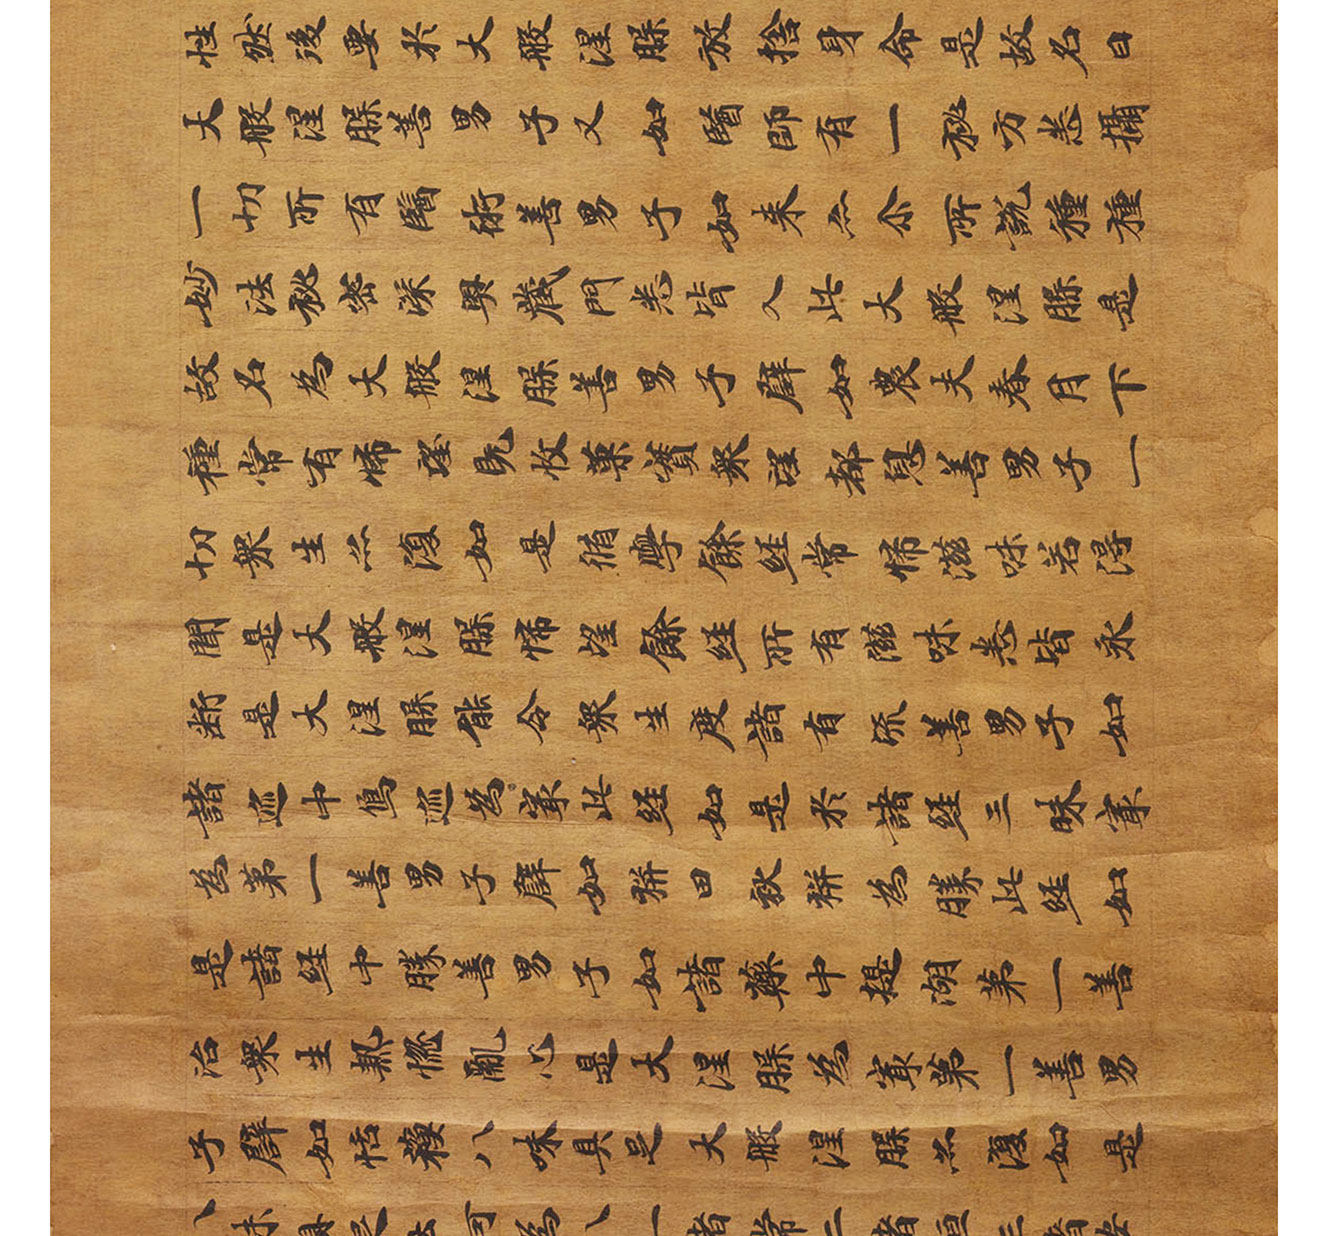 性然後要於大般涅槃放捨身命是故名曰
大般涅槃善男子又如醫師有一秘方悉攝
一切所有醫術善男子如来亦尒所說種種
妙法秘密深奧藏門悉皆入此大般涅槃是
故名為大般涅槃善男子譬如農夫春月下
種常有悕望既收菓實衆望都息善男子一
切衆生亦復如是脩學餘經常悕滋味若得
聞是大般涅槃悕望餘經所有滋味悉皆永
断是大涅槃能令衆生度諸有流善男子如
諸迹中象迹為冣此經如是於諸經三昧冣
為第一善男子譬如耕田秋耕為勝此經如
是諸經中勝善男子如諸藥中提湖第一善
治衆生熱惱亂心是大涅槃為冣第一善男
子譬如恬穌八味具足大般涅槃亦復如是
八味具足何為八一者常二者恒三者安